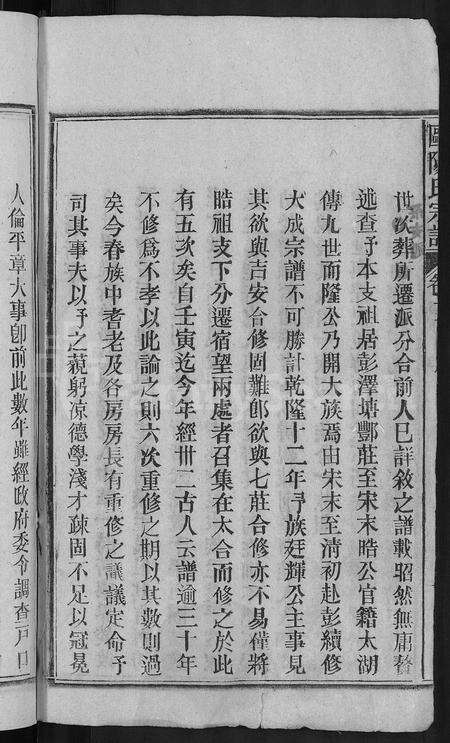 歐陽氏宗譜
世次葬所遷派分合前人已詳敘之譜載昭然無庸贅
述查予本支祖居彭澤塘酈莊至宋末晧公官籍太湖
傳九世而隆公乃開大族焉由宋末至清初赴彭續修
大成宗譜不可勝計乾隆十二年予族廷輝公主事見
其欲與吉安合修固難郎欲與七莊合修亦不易僅將
晧祖支下分遷宿望兩處者召集在太合而修之於此
有五次矣自壬寅迄今年經卅二古人云譜逾三十年
不修為不孝以此論之則六次重修之期以其數則過
矣今春族中耆老及各房房長有重修之議議定命予
司其事夫以予之藐躬凉德學淺才疎固不足以冠冕
人倫平章大事卽前此數年雖經政府委令調查戸口